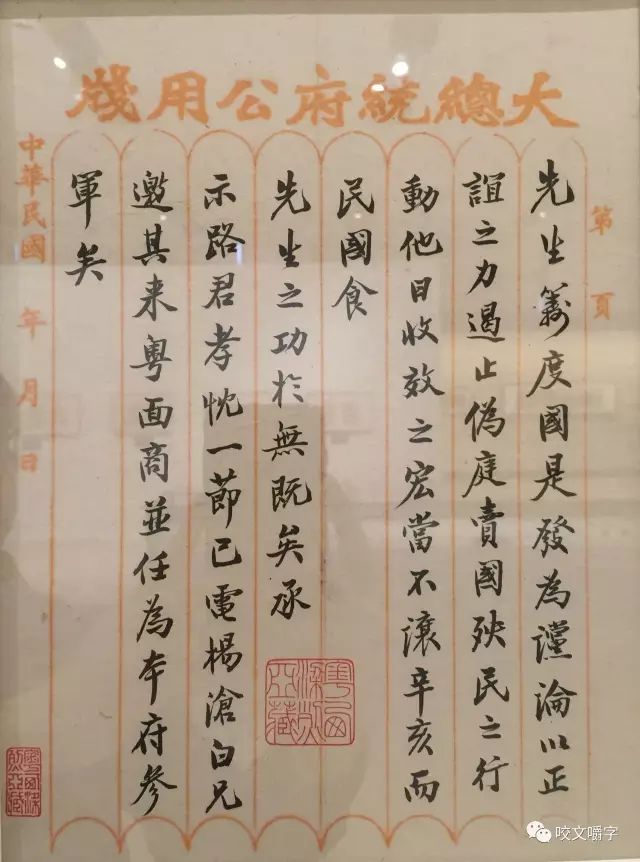 大總統府公用牋
第 頁
先生籌度國是發為讜論以正
誼之力遏止偽庭賣國殃民之行
動他日收效之宏當不讓辛亥而
民國食
先生之功於無既矣承
示路君孝忱一節已電楊滄白兄
邀其来粵面商並任為本府參
軍矣
中華民國 年 月 日
咬文嚼字